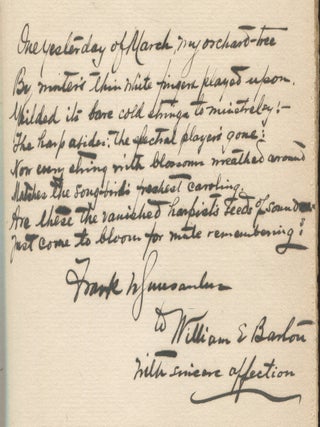 One yesterday of March my orchard-tree
By winter's thin white fingers played upon,
Yielded its bare cold strings to minstrelsy:—
The harp abides; the spectral player's gone:
Now every string with blossoms wreathed around
Matches the song-bird's freshest caroling.
Are these the vanished harpist's seeds of sound
Just come to bloom for mute remembering?
Frank W Gunsaulus
to
William E Barton
With sincere affection